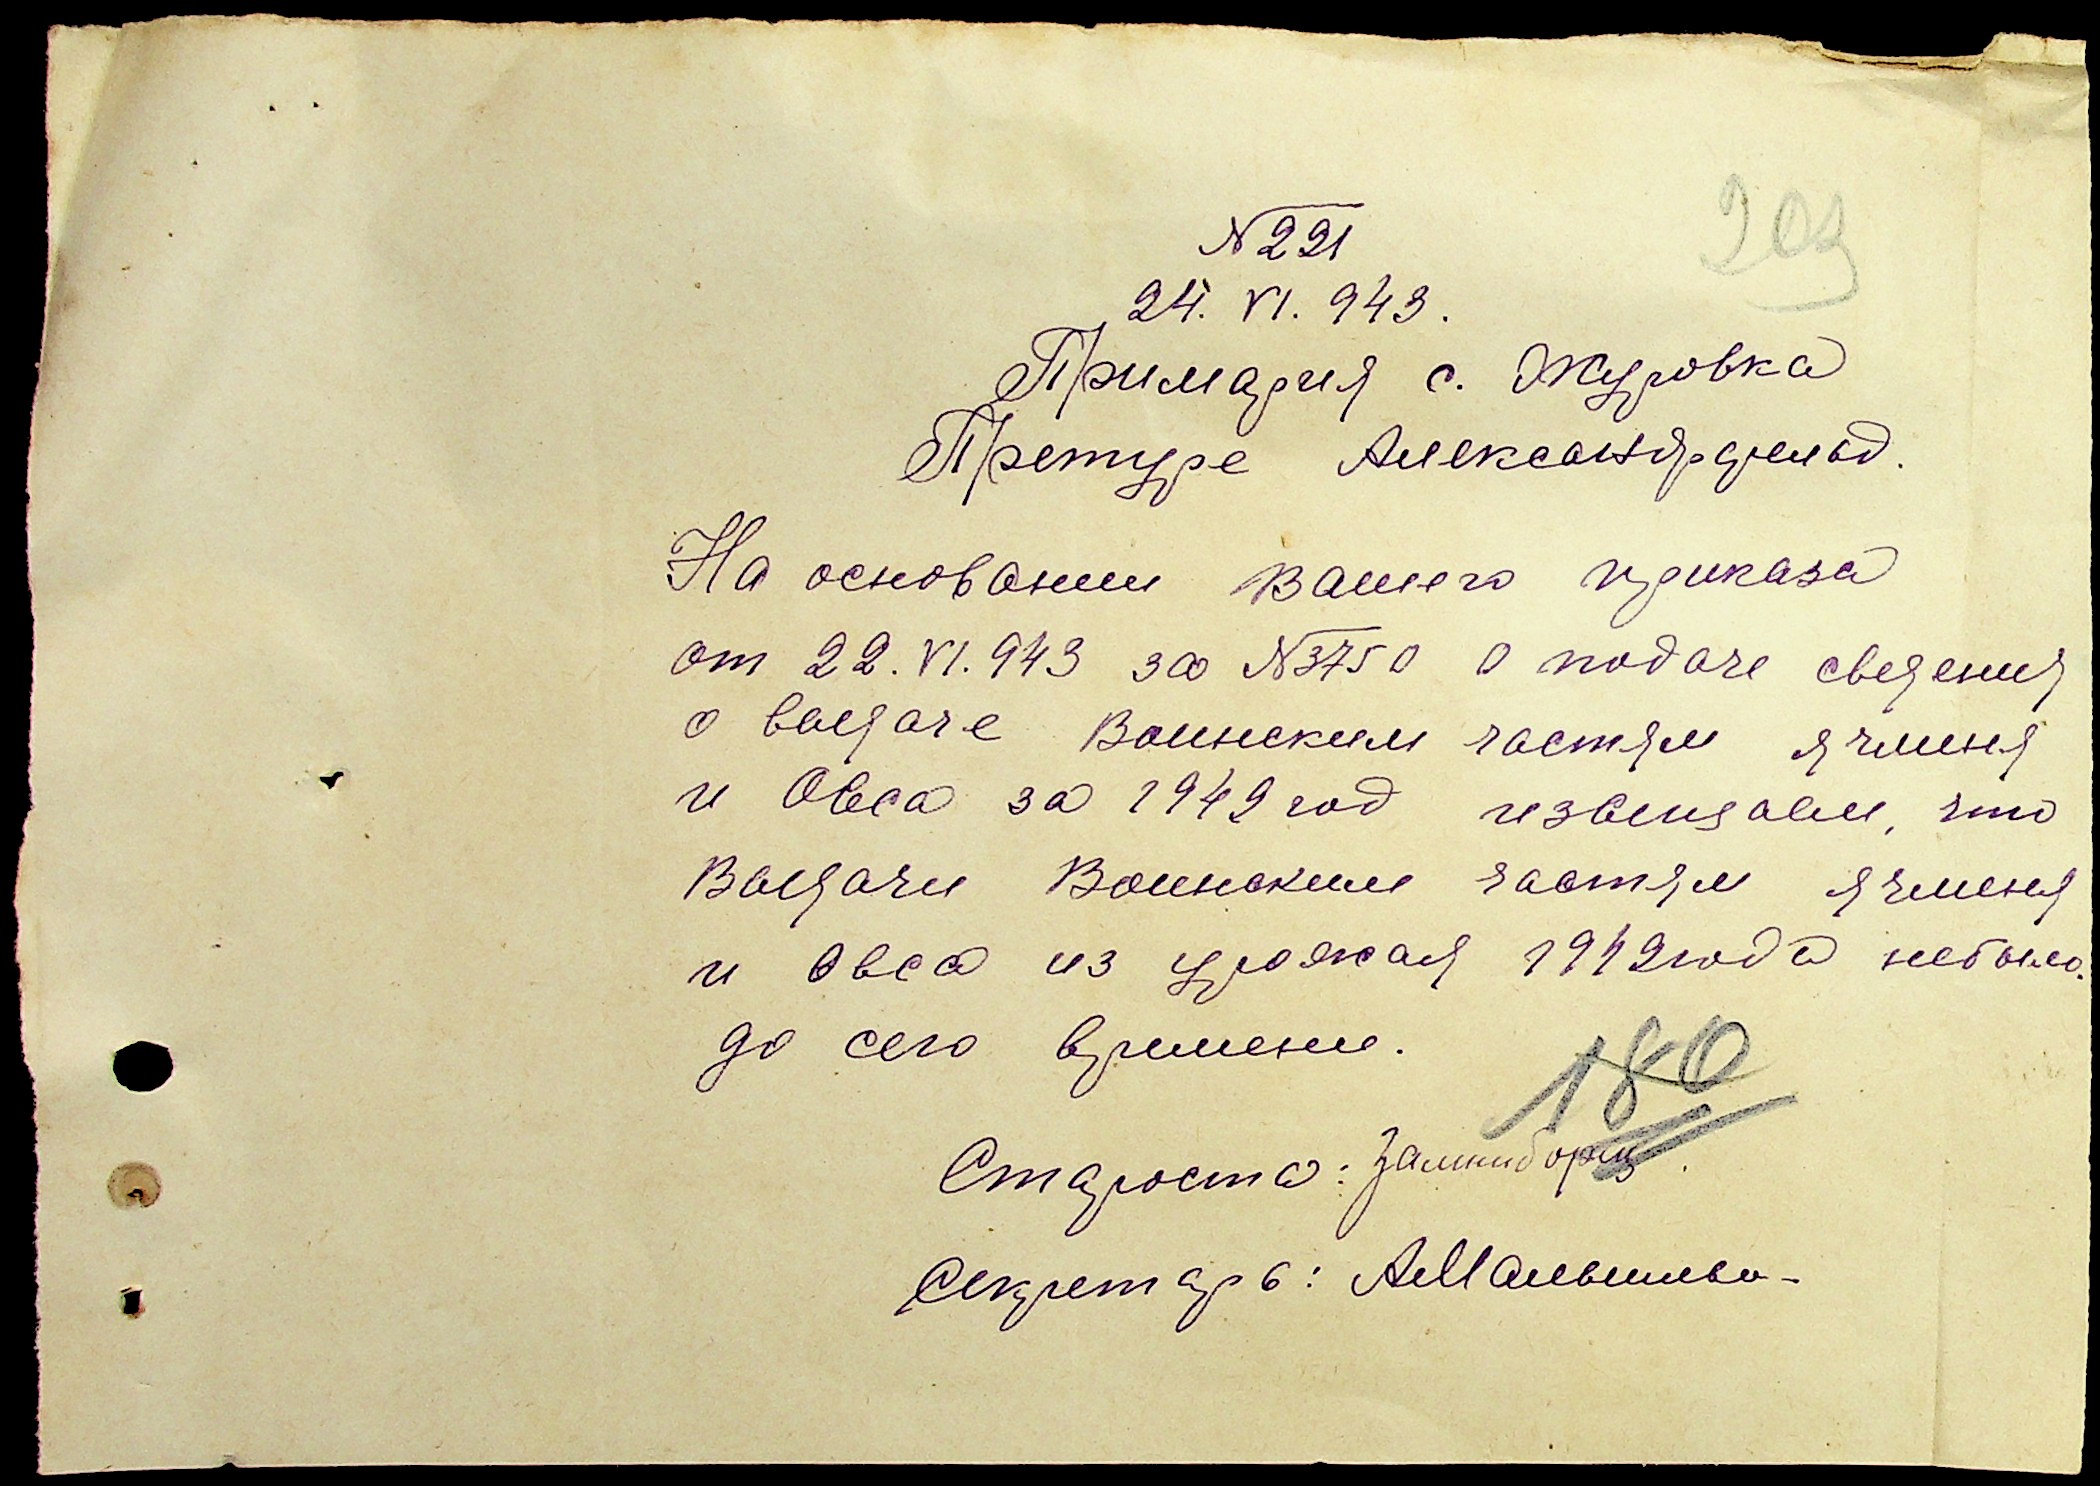 203
№221
24. VI. 943.
Примария с. Журовка
Претуре Александрфельд.
На основании Вашего приказа
от 22. VI. 943 за №3750 о подаче сведения
о выдаче Воинским частям ячменя
и Овса за 1942 год извещаем, что
Выдачи Воинским частям ячменя
и Овса из урожая 1942 года небыло.
до сего времени.
180
Староста:
Секретарь: АМалышева